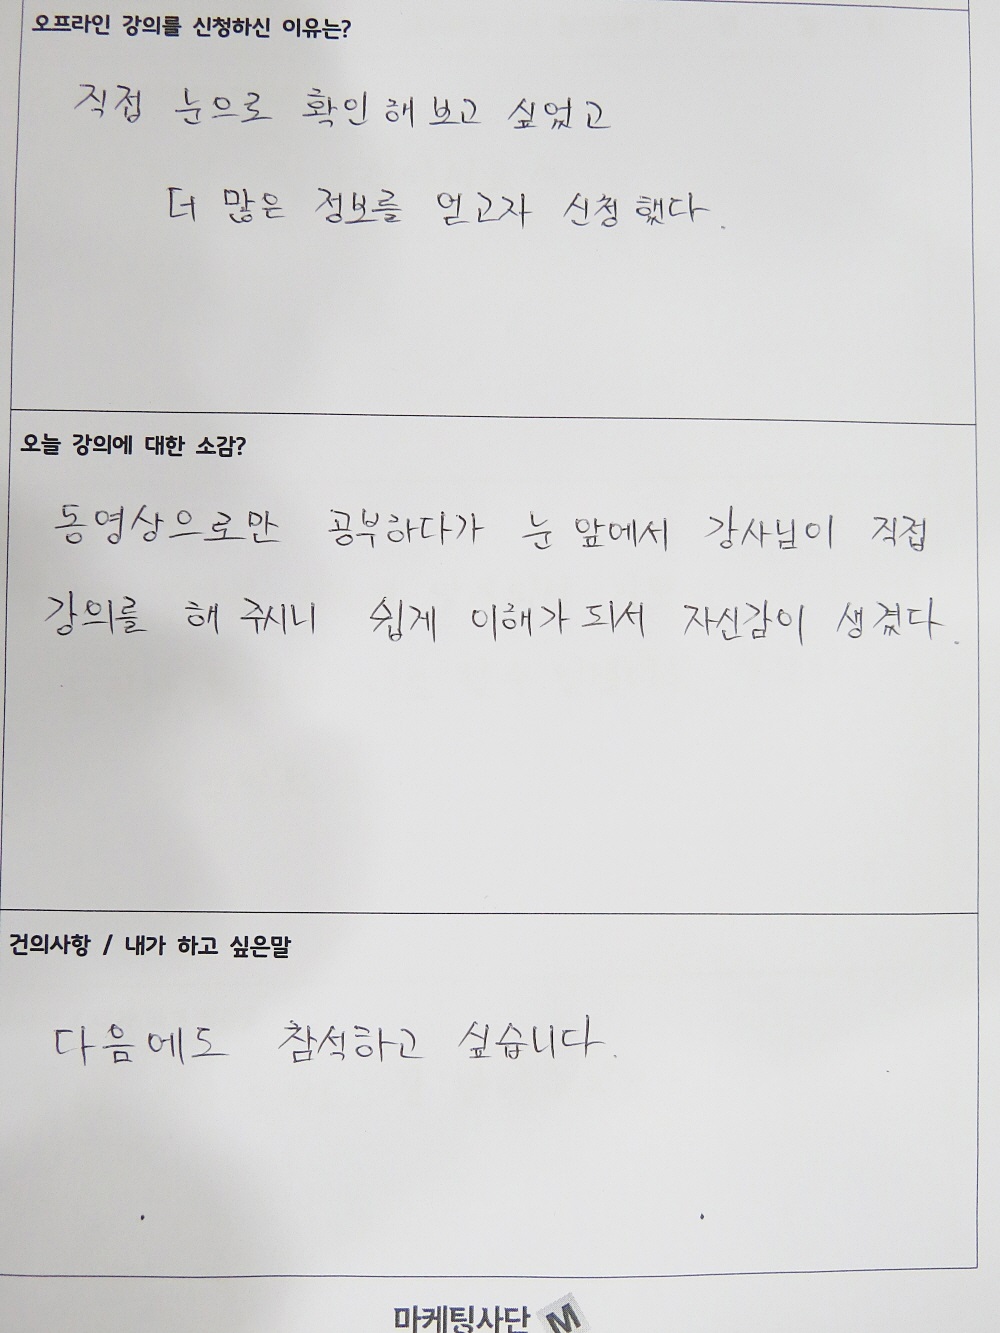 오프라인 강의를 신청하신 이유는?
직접 눈으로 확인해보고 싶었고
더 많은 정보를 얻고자 신청했다.
오늘 강의에 대한 소감?
동영상으로만 공부하다가 눈 앞에서 강사님이 직접
강의를 해 주시니 쉽게 이해가 되서 자신감이 생겼다.
건의사항 / 내가 하고 싶은말
다음에도 참석하고 싶습니다.
마케팅사단 M